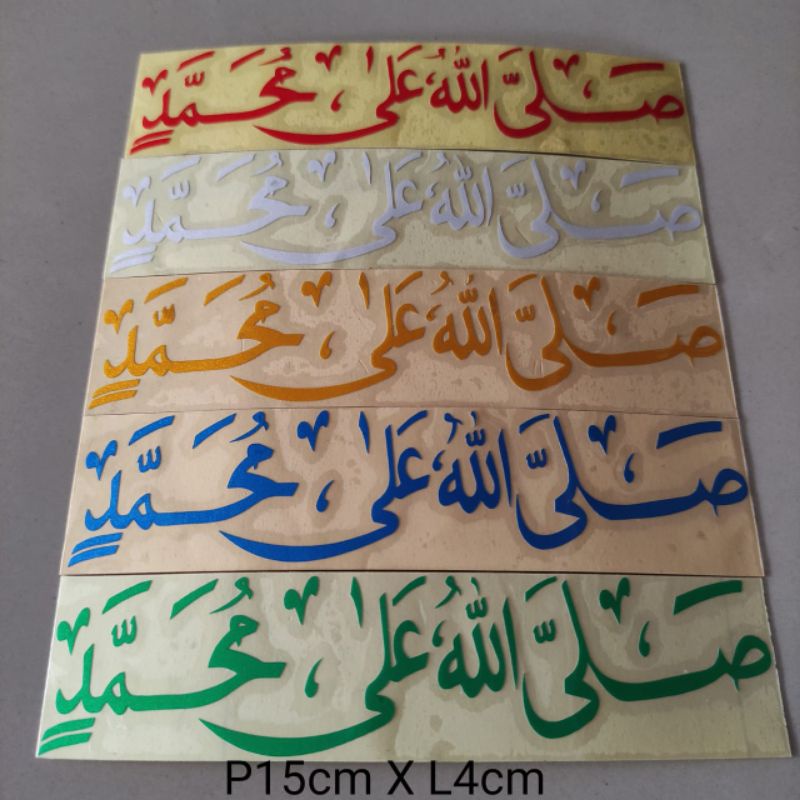 صَلَّى اللهُ عَلَى مُحَمَّدٍ
صَلَّى اللهُ عَلَى مُحَمَّدٍ
صَلَّى اللهُ عَلَى مُحَمَّدٍ
صَلَّى اللهُ عَلَى مُحَمَّدٍ
صَلَّى اللهُ عَلَى مُحَمَّدٍ
P15cm X L4cm